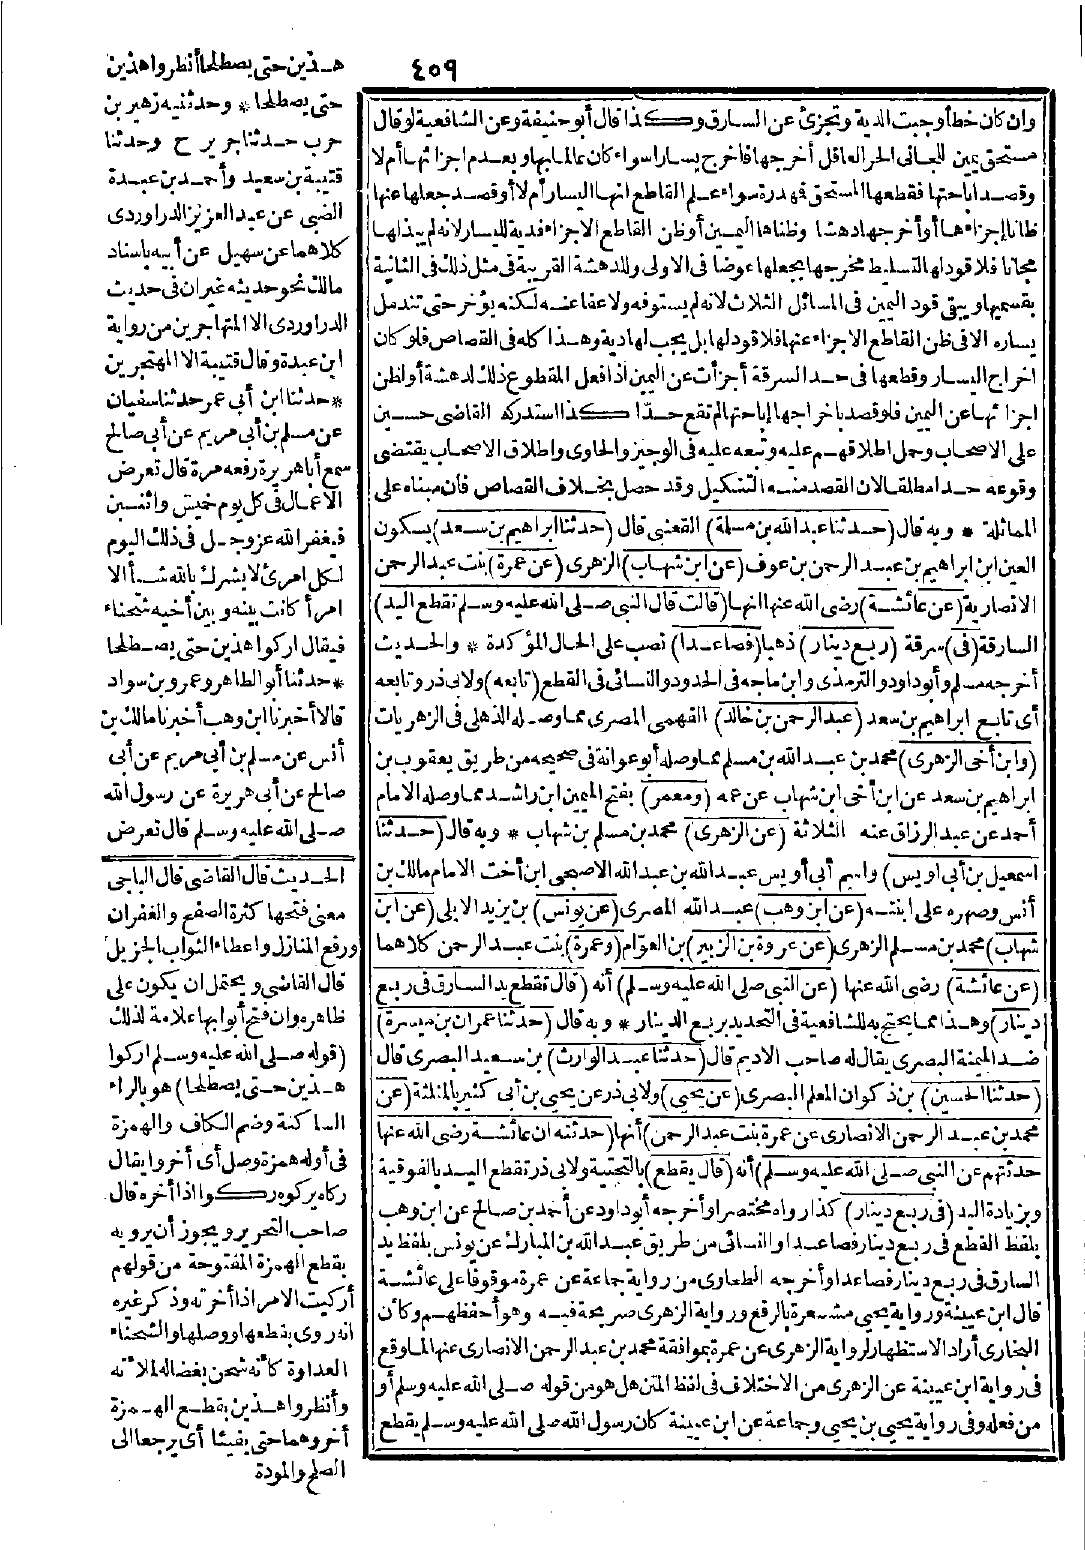 ٤٥٩
وان كان خطأ وجبت الدية وتجزئ عن السارق وكذا قال أبو حنيفة وعن الشافعية لو قال
مستحق يمين للجاني الحر العاقل أخرجها فاخرج يسارا سواء كان عالما بها وبعدم اجزائها أم لا
وقصد اباحتها فقطعها المستحق فهدرة سواء علم القاطع انها اليسار أم لا أو قصد جعلها عنها
ظانا إجزاءها أو أخرجها دهشا وظناها اليمين أو ظن القاطع الاجزاء فدية لليسار لانه لم يبذلها
مجانا فلا قود لها لتسليط مخرجها بجعلها عوضا فى الاولى وللدهشة القريبة فى مثل ذلك فى الثانية
بقسميها ويبقى قود اليمين فى المسائل الثلاث لانه لم يستوفه ولا عفا عنه لكنه يؤخر حتى تندمل
يساره الا فى ظن القاطع الاجزاء عنها فلا قود لها بل يجب لها دية وهذا كله فى القصاص فلو كان
اخراج اليسار وقطعها فى حد السرقة أجزأت عن اليمين اذا فعل المقطوع ذلك لدهشة أو لظن
اجزائها عن اليمين فلو قصد باخراجها إباحتها لم تقع حدّا كذا استدركه القاضى حسين
على الاصحاب وحمل اطلاقهم عليه وتبعه عليه فى الوجيز والحاوى واطلاق الاصحاب يقتضى
وقوعه حدا مطلقا لان القصد منه التنكيل وقد حصل بخلاف القصاص فأن مبناه على
المماثلة * وبه قال (حدثنا عبد الله بن مسلمة) القعنبى قال (حدثنا ابراهيم بن سعد) بسكون
العين ابن ابراهيم بن عبد الرحمن بن عوف (عن ابن شهاب) الزهرى (عن عمرة) بنت عبد الرحمن
الانصارية (عن عائشة) رضى الله عنها انها (قالت قال النبى صلى الله عليه وسلم تقطع اليد)
السارقة (فى) سرقة (ربع دينار) ذهبا (فصاعدا) نصب على الحال المؤكدة * والحديث
أخرجه مسلم وأبو داود والترمذى وابن ماجه فى الحدود والنسائى فى القطع (تابعه) ولابى ذر وتابعه
أى تابع ابراهيم بن سعد (عبد الرحمن بن خالد) الفهمى المصرى مما وصله الذهلى فى الزهريات
(وابن أخى الزهرى) محمد بن عبد الله بن مسلم مما وصله أبو عوانة فى صحيحه من طريق يعقوب بن
ابراهيم بن سعد عن ابن أخى ابن شهاب عن عمه (ومعمر) بفتح الميمين ابن راشد مما وصله الامام
أحمد عن عبد الرزاق عنه الثلاثة (عن الزهرى) محمد بن مسلم بن شهاب * وبه قال (حدثنا
اسمعيل بن أبى اويس) واسم أبى أويس عبد الله بن عبد الله الاصبحى ابن أخت الامام مالك بن
أنس وصهره على ابنته (عن ابن وهب) عبد الله المصرى (عن يونس) بن يزيد الايلى (عن ابن
شهاب) محمد بن مسلم الزهرى (عن عروة بن الزبير) بن العوّام (وعمرة) بنت عبد الرحمن كلاهما
(عن عائشة) رضى الله عنها (عن النبى صلى الله عليه وسلم) أنه (قال تقطع يد السارق فى ربع
دينار) وهذا مما يحتج به للشافعية فى التحديد بربع الدينار * وبه قال (حدثنا عمران بن ميسرة)
ضد الميمنة البصرى يقال له صاحب الاديم قال (حدثنا عبد الوارث) بن سعيد البصرى قال
(حدثنا الحسين) بن ذكوان المعلم البصرى (عن يحيى) ولابى ذر عن يحيى بن أبى كثير بالمثلثة (عن
محمد بن عبد الرحمن الانصارى عن عمرة بنت عبد الرحمن) أنها (حدثته ان عائشة رضى الله عنها
حدثتهم عن النبى صلى الله عليه وسلم) أنه (قال يقطع) بالتحتية ولابى ذر تقطع اليد بالفوقية
وبزيادة اليد (فى ربع دينار) كذا رواه مختصرا وأخرجه أبو داود عن أحمد بن صالح عن ابن وهب
بلفظ القطع فى ربع دينار فصاعدا والنسائى من طريق عبد الله بن المبارك عن يونس بلفظ يد
السارق فى ربع دينار فصاعدا وأخرجه الطحاوى من رواية جماعة عن عمرة موقوفا على عائشة
قال ابن عيينة ورواية يحيى مشعرة بالرفع ورواية الزهرى صريحة فيه وهو أحفظهم وكأن
البخارى أراد الاستظهار لرواية الزهرى عن عمرة بموافقة محمد بن عبد الرحمن الانصارى عنها لما وقع
فى رواية ابن عيينة عن الزهرى من الاختلاف فى لفظ المتن هل هو من قوله صلى الله عليه وسلم أو
من فعله وفى رواية يحيى بن يحيى وجماعة عن ابن عيينة كان رسول الله صلى الله عليه وسلم يقطع
هذين حتى يصطلحا أنظروا هذين
حتى يصطلحا * وحدثنيه زهير بن
حرب حدثنا جرير ح وحدثنا
قتيبة بن سعيد وأحمد بن عبدة
الضبى عن عبد العزيز الدراوردى
كلاهما عن سهيل عن أبيه باسناد
مالك نحو حديثه غير ان فى حديث
الدراوردى الا المتهاجرين من رواية
ابن عبدة وقال قتيبة الا المهتجرين
* حدثنا ابن أبى عمر حدثنا سفيان
عن مسلم بن أبى مريم عن أبى صالح
سمع أبا هريرة رفعه مرة قال تعرض
الاعمال فى كل يوم خميس واثنين
فيغفر الله عز وجل فى ذلك اليوم
لكل امرئ لا يشرك بالله شيأ الا
امرأ كانت بينه وبين أخيه شحناء
فيقال اركوا هذين حتى يصطلحا
* حدثنا أبو الطاهر وعمرو بن سواد
قالا أخبرنا ابن وهب أخبرنا مالك بن
أنس عن مسلم بن أبى مريم عن أبى
صالح عن أبى هريرة عن رسول الله
صلى الله عليه وسلم قال تعرض
الحديث قال القاضى قال الباجى
معنى فتحها كثرة الصفح والغفران
ورفع المنازل واعطاء الثواب الجزيل
قال القاضى ويحتمل ان يكون على
ظاهره وان فتح أبوابها علامة لذلك
(قوله صلى الله عليه وسلم اركوا
هذين حتى يصطلحا) هو بالراء
الساكنة وضم الكاف والهمزة
فى أوله همزة وصل أى أخروا يقال
ركاه يركوه ركوا اذا أخره قال
صاحب التحرير ويجوز أن يرويه
بقطع الهمزة المفتوحة من قولهم
أركيت الامر اذا أخرته وذكر غيره
انه روى بقطعها ووصلها والشحناء
العداوة كأنه شحن بغضا له لملا ته
وأنظروا هذين بقطع الهمزة
أخروهما حتى يفيئا أى يرجعا الى
الصلح والمودة